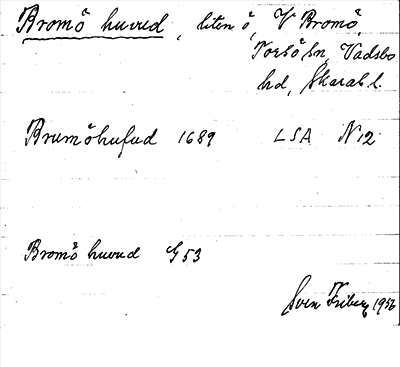 Bromö huvud, liten ö, V Bromö,
Torsö sn, Vadsbo
hd, Skarab. l.
Brumöhufud 1689 LSA N12
Bromö huvud G 53
Sven Friberg 1956